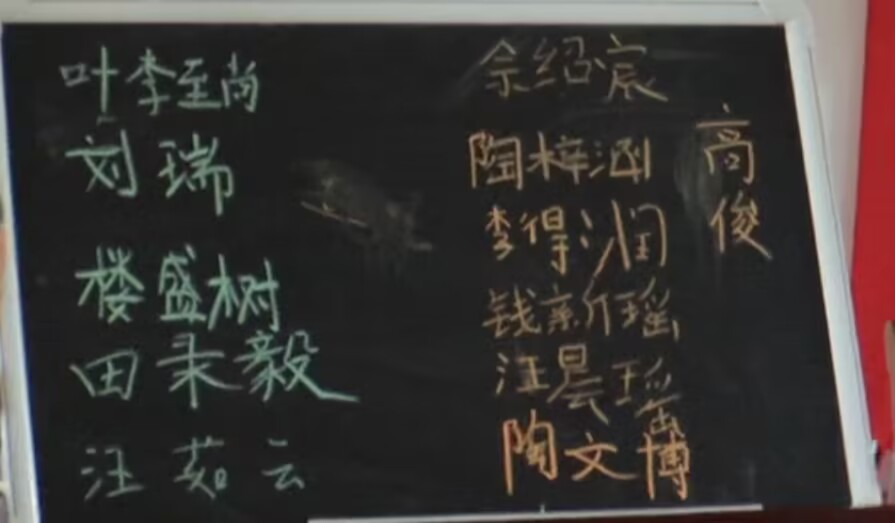 叶李至尚
刘瑞
楼盛树
田承毅
汪茹云
佘绍宸
陶梓涵
李得润
钱新瑶
汪晨瑶
陶文博
高俊